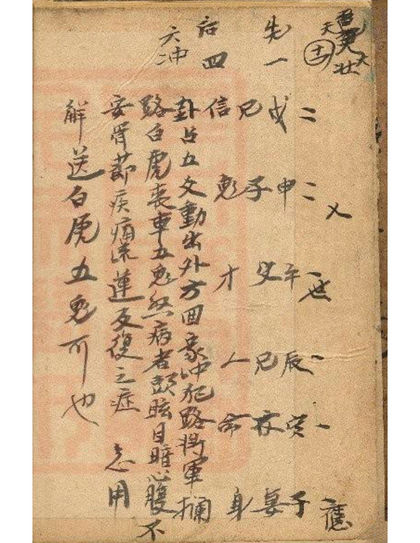 大壯
二 二 乂 一 世 一 一 應
先一 戌 申 午 辰 寅 子
后四 信 鬼 才 人 命 身
六冲
卦占五爻動出外方回家冲犯路將軍攔
路白虎喪車五鬼然病者頭眩目暗心腹不
安骨節疾痛連反復之症 急用
解送白虎五鬼可也